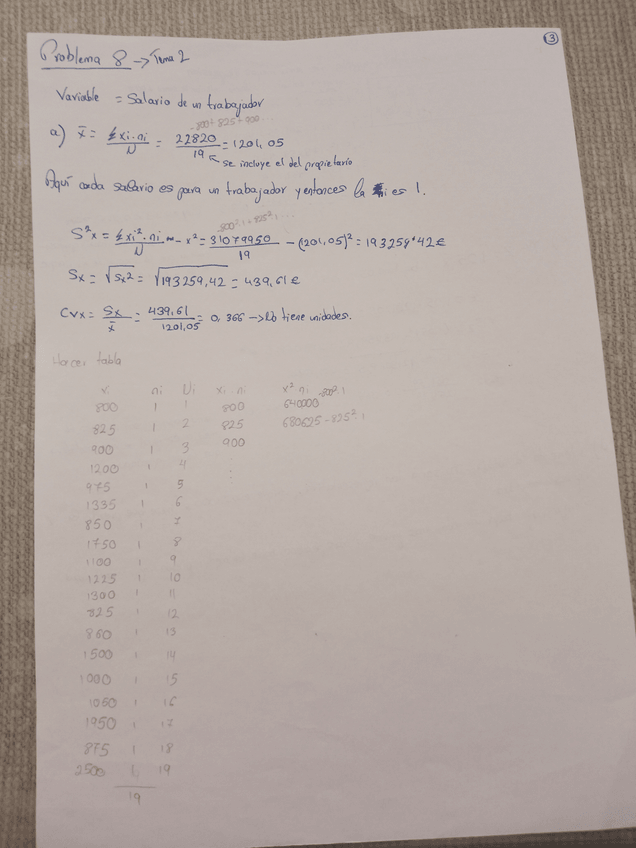 3
Problema 8 → Tema 2
Variable = Salario de un trabajador
800 + 825 + 900 ...
a) x̄ = Σxi·ni / N = 22820 / 19 = 1201,05
se incluye el del propietario
Aquí cada salario es para un trabajador y entonces la ni es 1.
800²·1 + 825²·1 ...
S²x = Σxi²·ni / N - x² = 31079950 / 19 - (1201,05)² = 193259'42 €
Sx = √Sx² = √193259,42 = 439,61 €
CVx = Sx / x̄ = 439,61 / 1201,05 = 0,366 → No tiene unidades.
Hacer tabla
xi ni Ni xi·ni x² ni
800 1 1 800 640000 - 800²·1
825 1 2 825 680625 - 825²·1
900 1 3 900
1200 1 4
975 1 5
1335 1 6
850 1 7
1750 1 8
1100 1 9
1225 1 10
1300 1 11
825 1 12
860 1 13
1500 1 14
1000 1 15
1050 1 16
1950 1 17
875 1 18
2500 1 19
19